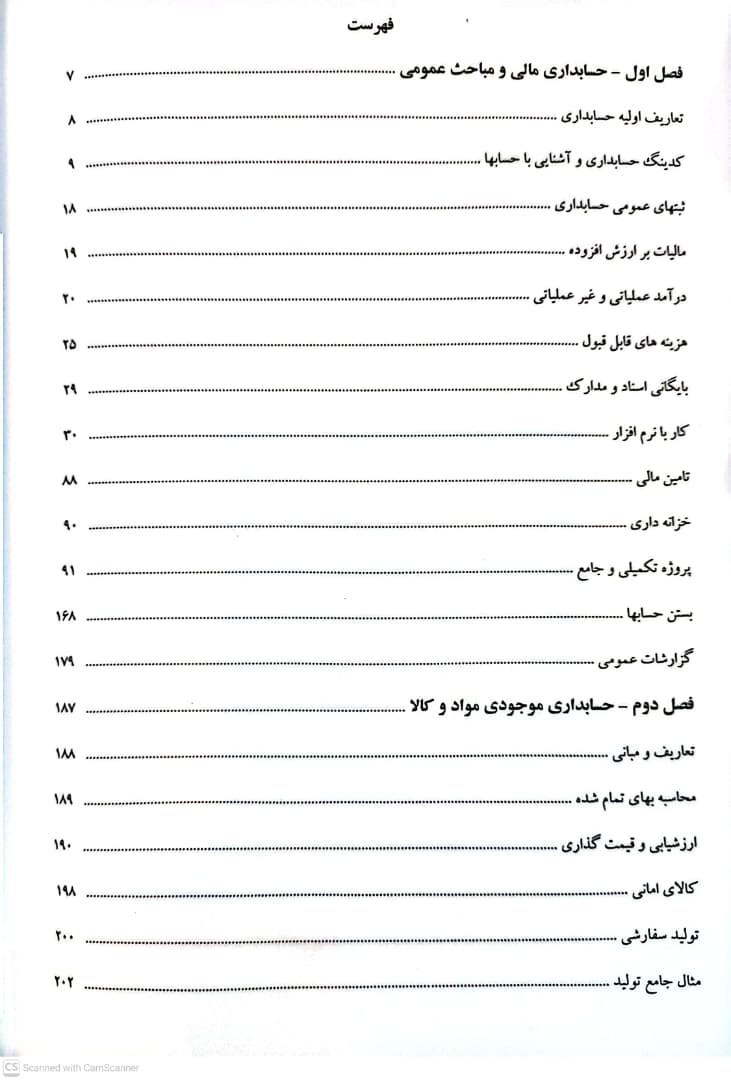 فهرست
فصل اول – حسابداری مالی و مباحث عمومی ........ ۷
تعاریف اولیه حسابداری ........ ۸
کدینگ حسابداری و آشنایی با حسابها ........ ۹
ثبتهای عمومی حسابداری ........ ۱۸
مالیات بر ارزش افزوده ........ ۱۹
درآمد عملیاتی و غیر عملیاتی ........ ۲۰
هزینه های قابل قبول ........ ۲۵
بایگانی اسناد و مدارک ........ ۲۹
کار با نرم افزار ........ ۳۰
تامین مالی ........ ۸۸
خزانه داری ........ ۹۰
پروژه تکمیلی و جامع ........ ۹۱
بستن حسابها ........ ۱۶۸
گزارشات عمومی ........ ۱۷۹
فصل دوم – حسابداری موجودی مواد و کالا ........ ۱۸۷
تعاریف و مبانی ........ ۱۸۸
محاسبه بهای تمام شده ........ ۱۸۹
ارزشیابی و قیمت گذاری ........ ۱۹۰
کالای امانی ........ ۱۹۸
تولید سفارشی ........ ۲۰۰
مثال جامع تولید ........ ۲۰۲
CS Scanned with CamScanner